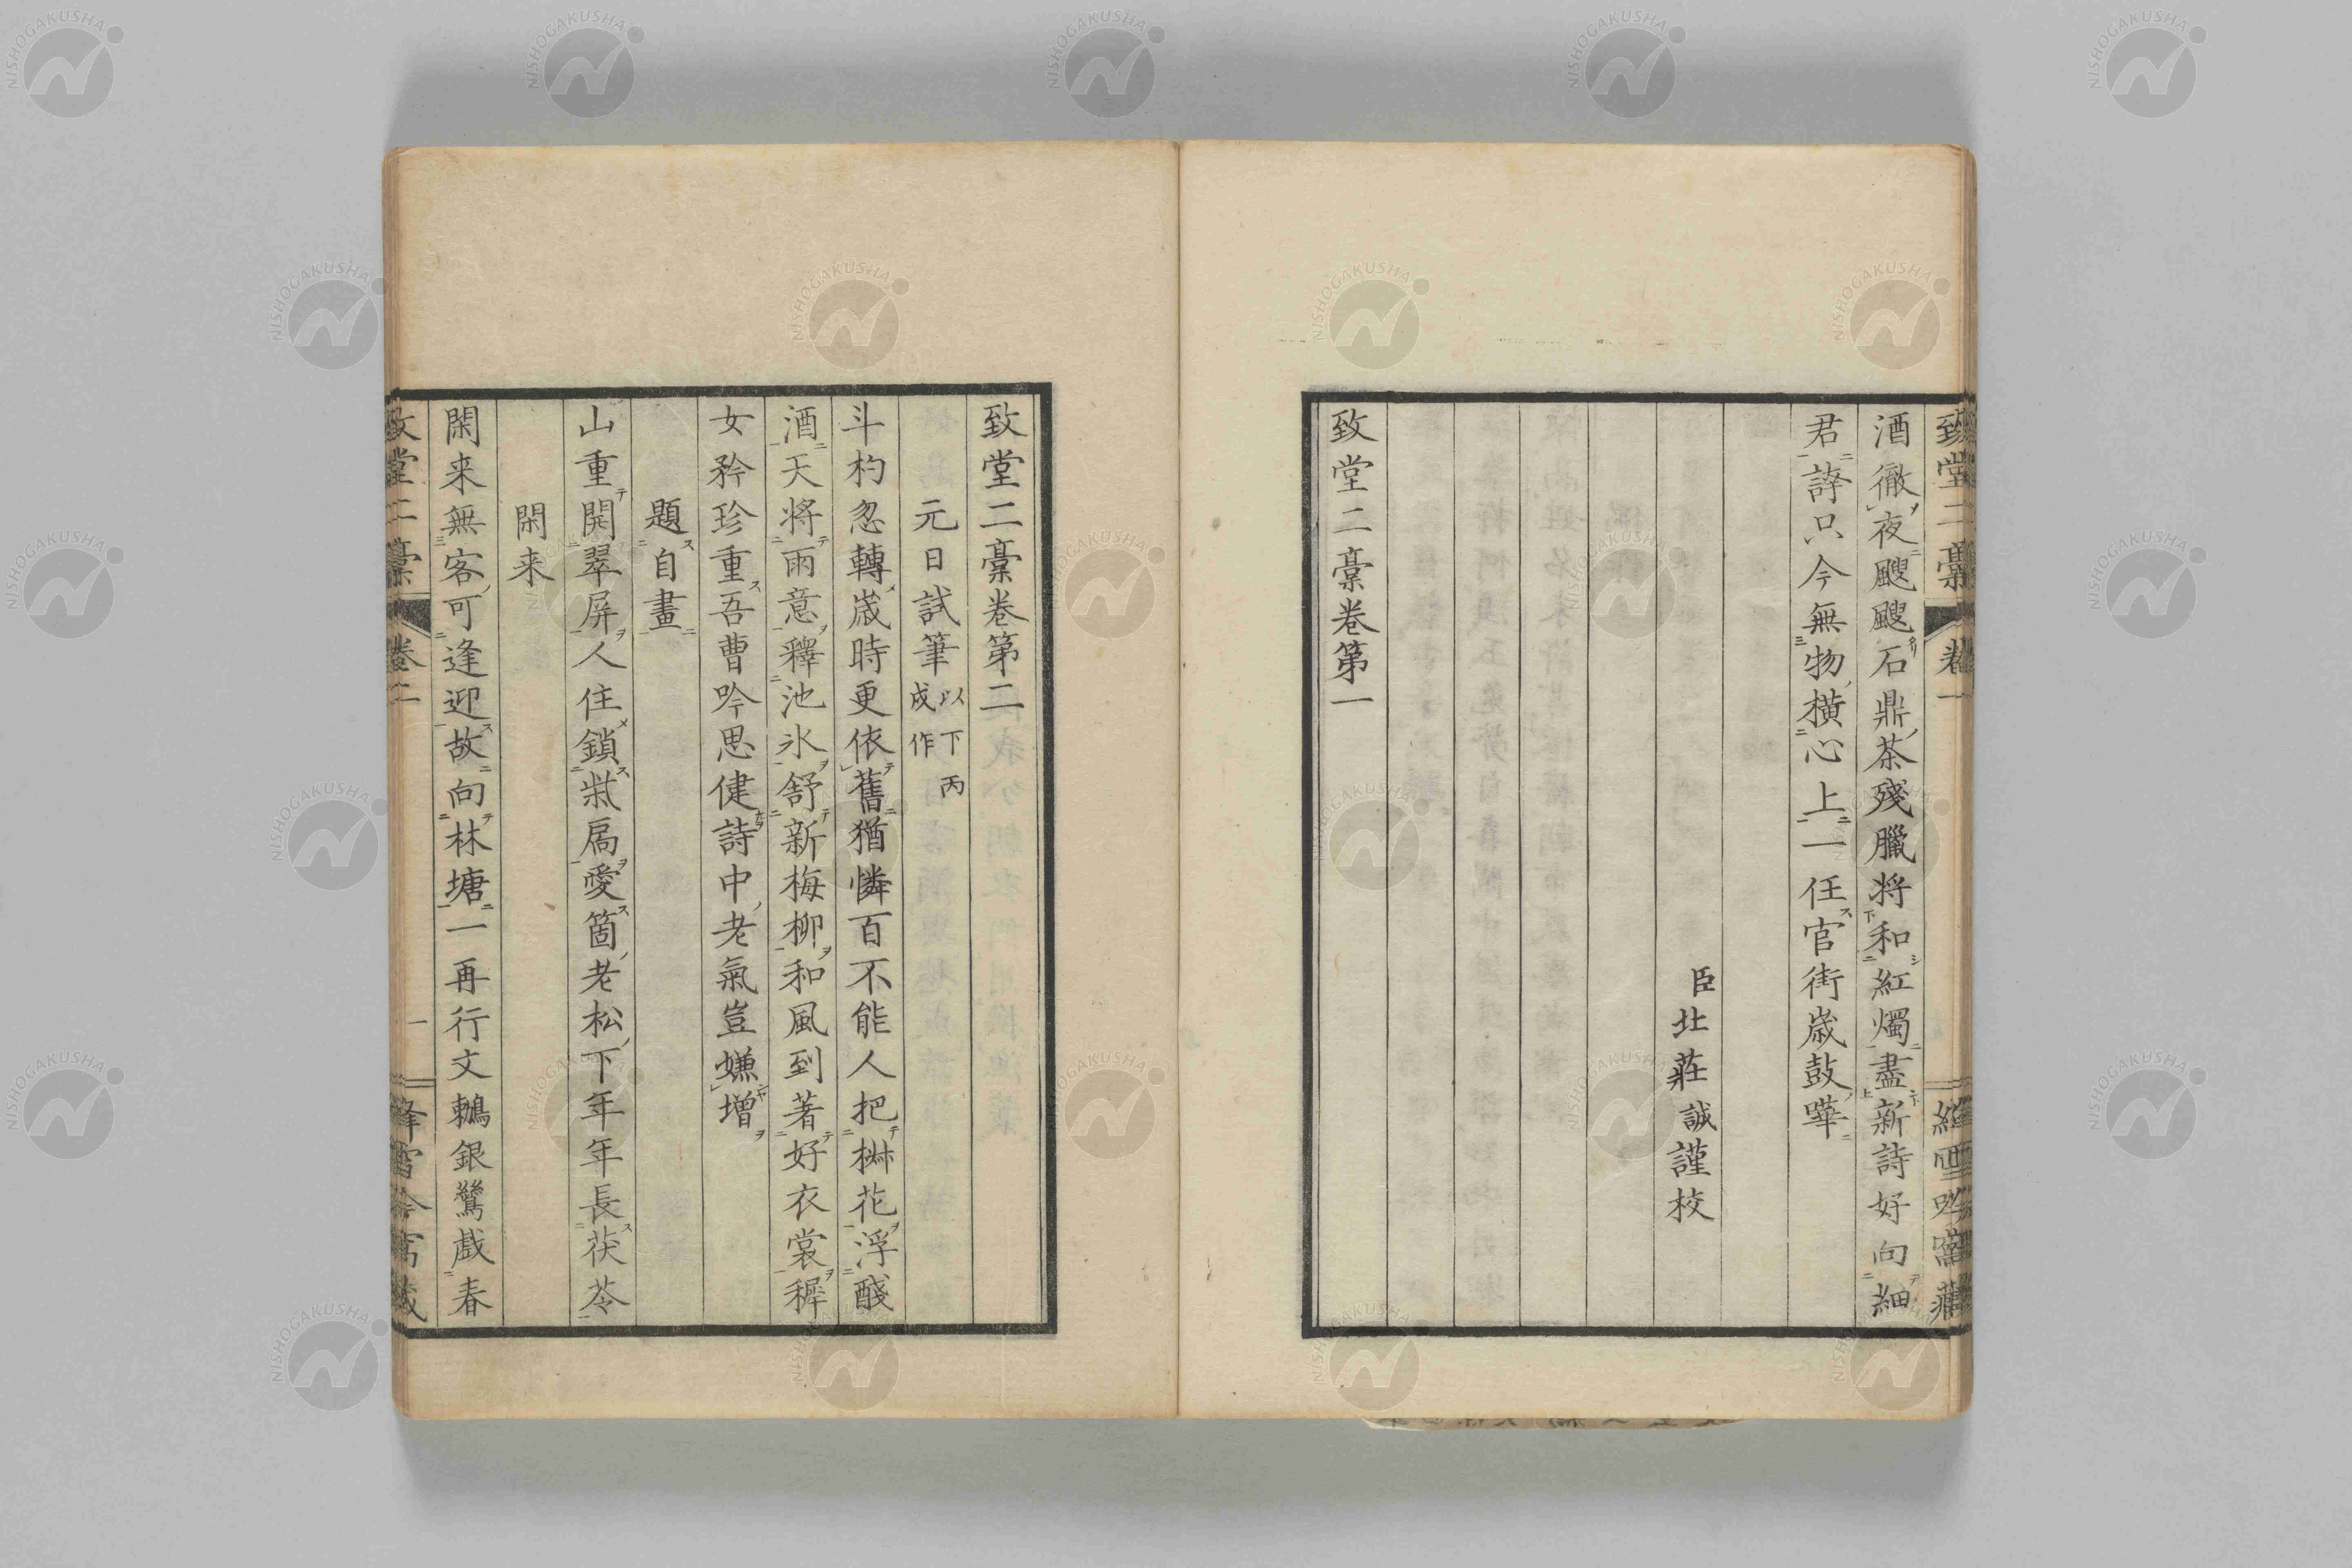 致堂二稾 卷一
酒徹夜颼颼石鼎茶殘臘将和紅燭盡新詩好向細
君誇只今無物横心上一任官街歳鼓嘩
臣北莊誠謹校
致堂二稾卷第一
致堂二稾卷第二
元日試筆 以下丙
成作
斗杓忽轉歳時更依舊猶憐百不能人把椒花浮醆
酒天将雨意釋池氷舒新梅柳和風到著好衣裳穉
女矜珍重吾曹吟思健詩中老氣豈嫌増
題自畫
山重開翠屏人住鎖柴扃愛箇老松下年年長茯苓
閑来
閑来無客可逢迎故向林塘一再行文鶼銀鷥戯春
致堂二稾 卷二 一
NISHOGAKUSHA